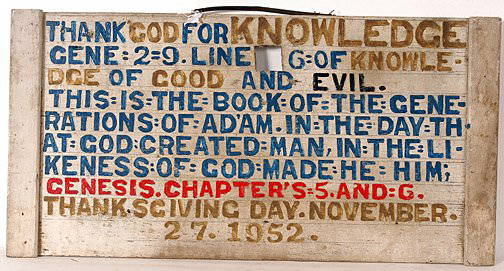 THANK GOD FOR KNOWLEDGE
GENE:2=9. LINE 6=OF KNOWLE-
DGE OF GOOD AND EVIL.
THIS=IS=THE=BOOK=OF=THE=GENE-
RATIONS=OF=ADAM. IN=THE=DAY=TH-
AT=GOD=CREATED=MAN, IN=THE=LI-
KENESS=OF=GOD=MADE=HE=HIM;
GENESIS. CHAPTER'S=5. AND=6.
THANKSGIVING DAY. NOVEMBER.
27. 1952.